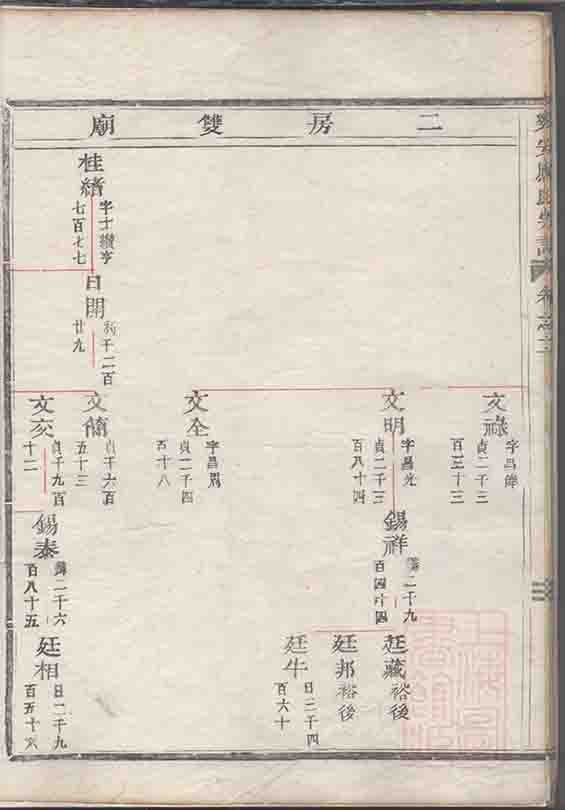 二房雙廟
文祿
字昌緯
貞二千三
百三十三
文明
字昌光
貞二千三
百八十四
錫祥
二千九
百四十四
廷藏
裕後
廷邦
裕後
廷牛
日二千四
百六十
文全
字昌周
貞二千四
百十八
桂緒
字士鑽亨
七百七七
日開
利千二百
廿九
文簡
貞千六百
五十三
文亥
貞千九百
十二
錫泰
二千六
百八十五
廷相
日二千九
百五十六